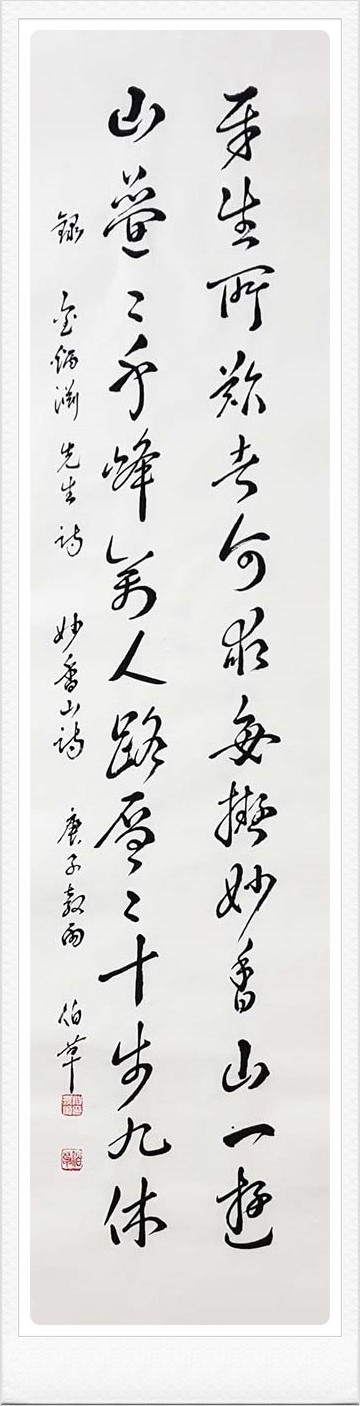 平生所欲者何求每擬妙香山一遊
山疊〻千峰萬人路層〻十步九休
錄 金炳淵先生詩 妙香山詩 庚子穀雨 伯草